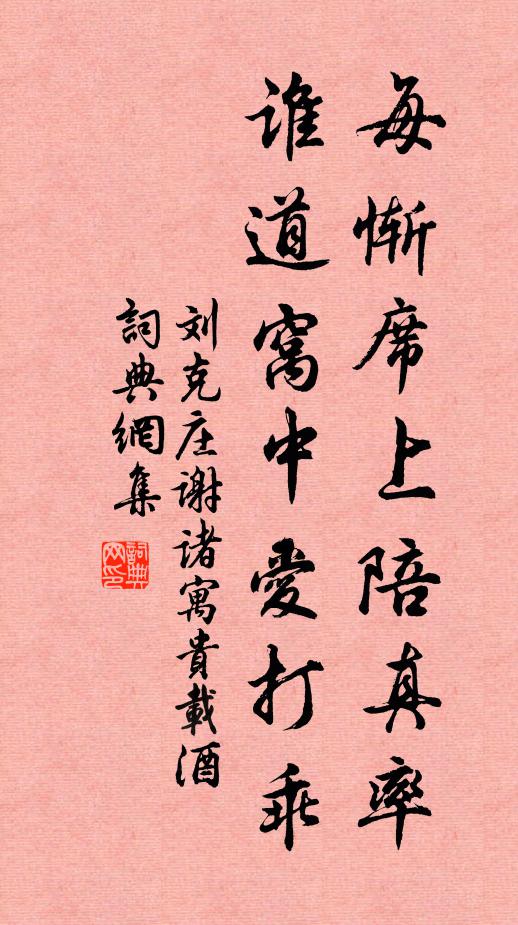 每惭席上陪真率
谁道窝中愛打乖
刘克庄谢诸寓貴載酒
詞典網集
詞典网印